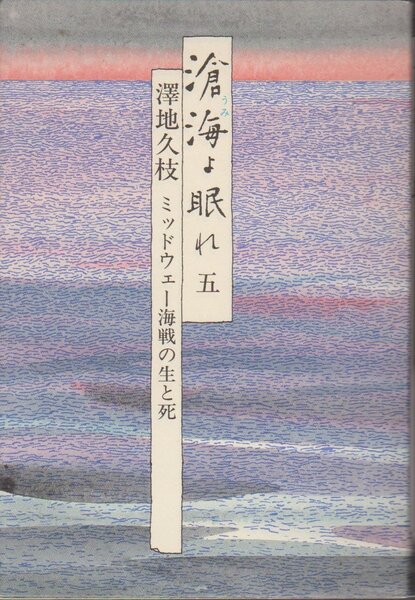 滄海よ眠れ 五
うみ
澤地久枝 ミッドウェー海戦の生と死